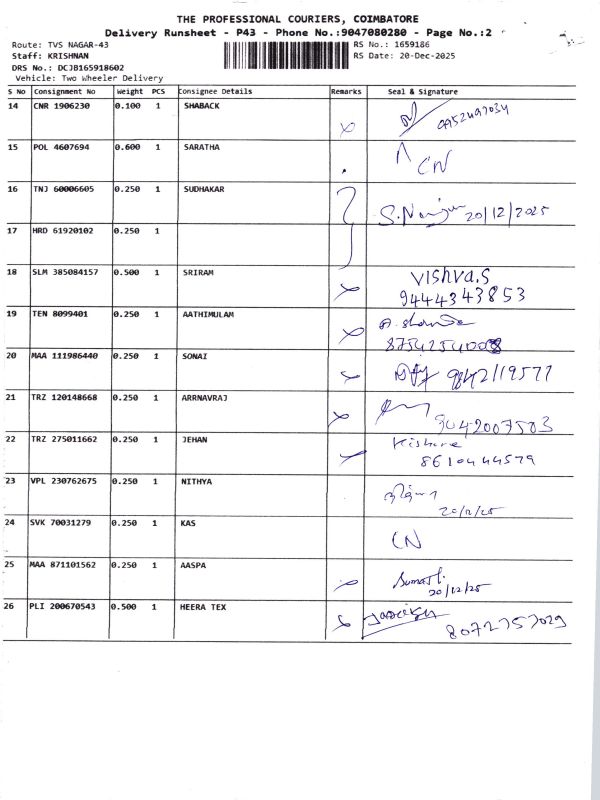 THE PROFESSIONAL COURIERS, COIMBATORE
Delivery Runsheet - P43 - Phone No.:9047080280 - Page No.:2
Route: TVS NAGAR-43 RS No.: 1659186
Staff: KRISHNAN RS Date: 20-Dec-2025
DRS No.: DCJB165918602
Vehicle: Two Wheeler Delivery
S No Consignment No Weight PCS Consignee Details Remarks Seal & Signature
14 CNR 1906230 0.100 1 SHABACK
15 POL 4607694 0.600 1 SARATHA CN
16 TNJ 60006605 0.250 1 SUDHAKAR 20/12/2025
17 HRD 61920102 0.250 1
18 SLM 385084157 0.500 1 SRIRAM Vishva.S
9444343853
19 TEN 8099401 0.250 1 AATHIMULAM
20 MAA 111986440 0.250 1 SONAI
21 TRZ 120148668 0.250 1 ARRNAVRAJ
9042007503
22 TRZ 275011662 0.250 1 JEHAN Kishore
8610444579
23 VPL 230762675 0.250 1 NITHYA
20/12/25
24 SVK 70031279 0.250 1 KAS CN
25 MAA 871101562 0.250 1 AASPA
20/12/25
26 PLI 200670543 0.500 1 HEERA TEX
8072757029